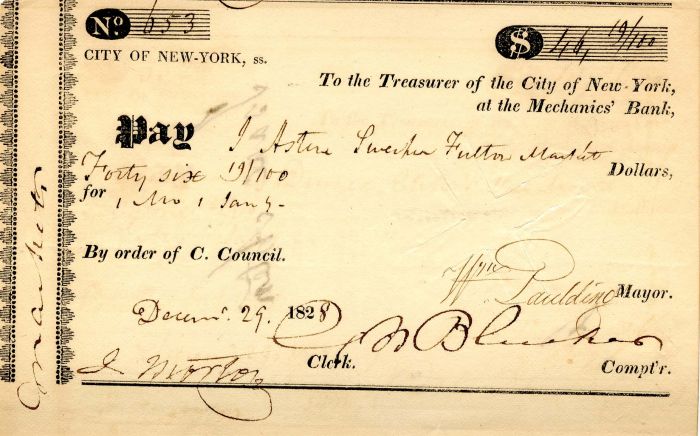 No 653 $ 46, 19/100
CITY OF NEW-YORK, ss.
To the Treasurer of the City of New-York,
at the Mechanics' Bank,
Pay J Asten Sweeper Fulton Market
Forty six 19/100 Dollars,
for 1 Mo 1 Jany-
By order of C. Council.
Wm Paulding Mayor.
Decemr. 29. 1828
J Morton Clerk. Compt'r.
Markets